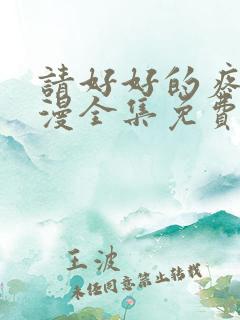 請好好的疼
漫全集免費
王波
未经同意禁止转载